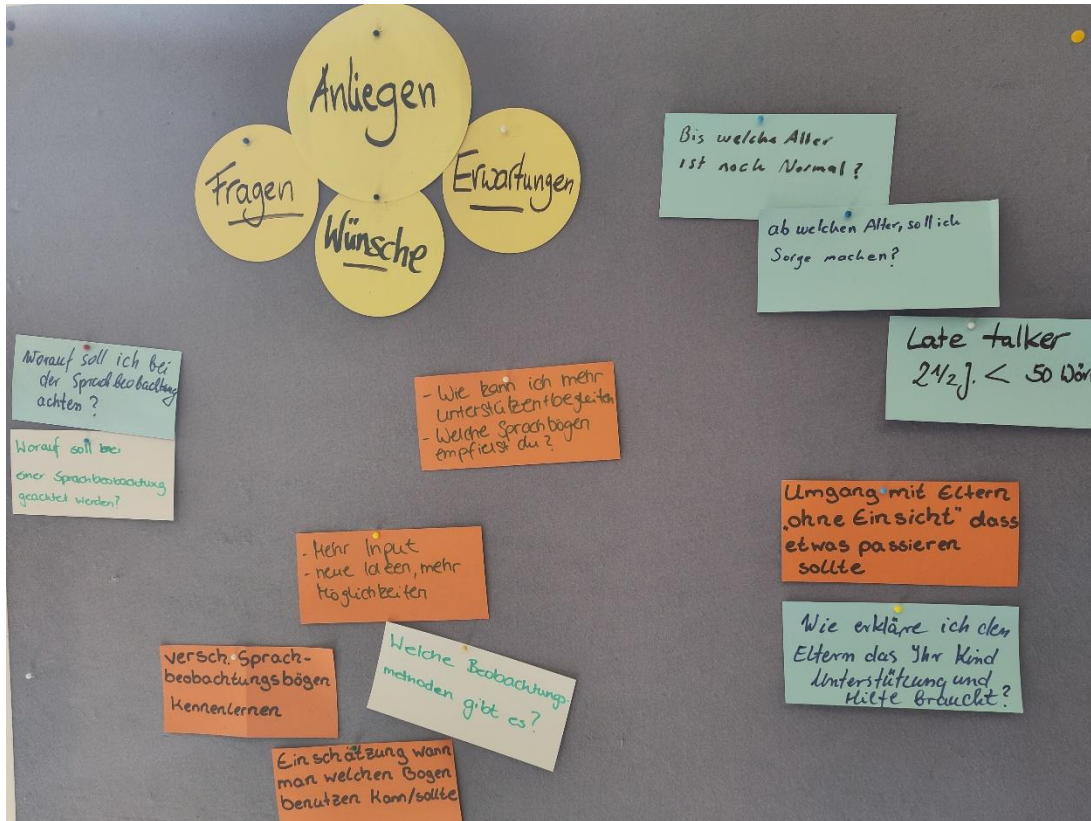 Anliegen
Fragen
Erwartungen
Wünsche
Bis welche Alter
ist noch Normal?
ab welchen Alter, soll ich
Sorge machen?
Late talker
2 1/2 J. < 50 Wör
Worauf soll ich bei
der Sprachbeobachtung
achten?
Worauf soll bei
einer Sprachbeobachtung
geachtet werden?
- Wie kann ich mehr
unterstützen+begleiten
- Welche Sprachbögen
empfielst du?
Umgang mit Eltern
"ohne Einsicht" dass
etwas passieren
sollte
- Mehr Input
- neue Ideen, mehr
Möglichkeiten
Wie erkläre ich den
Eltern das Ihr Kind
Unterstützung und
Hilfe braucht?
versch. Sprach-
beobachtungsbögen
Kennenlernen
Welche Beobachtungs-
methoden gibt es?
Einschätzung wann
man welchen Bogen
benutzen kann/sollte